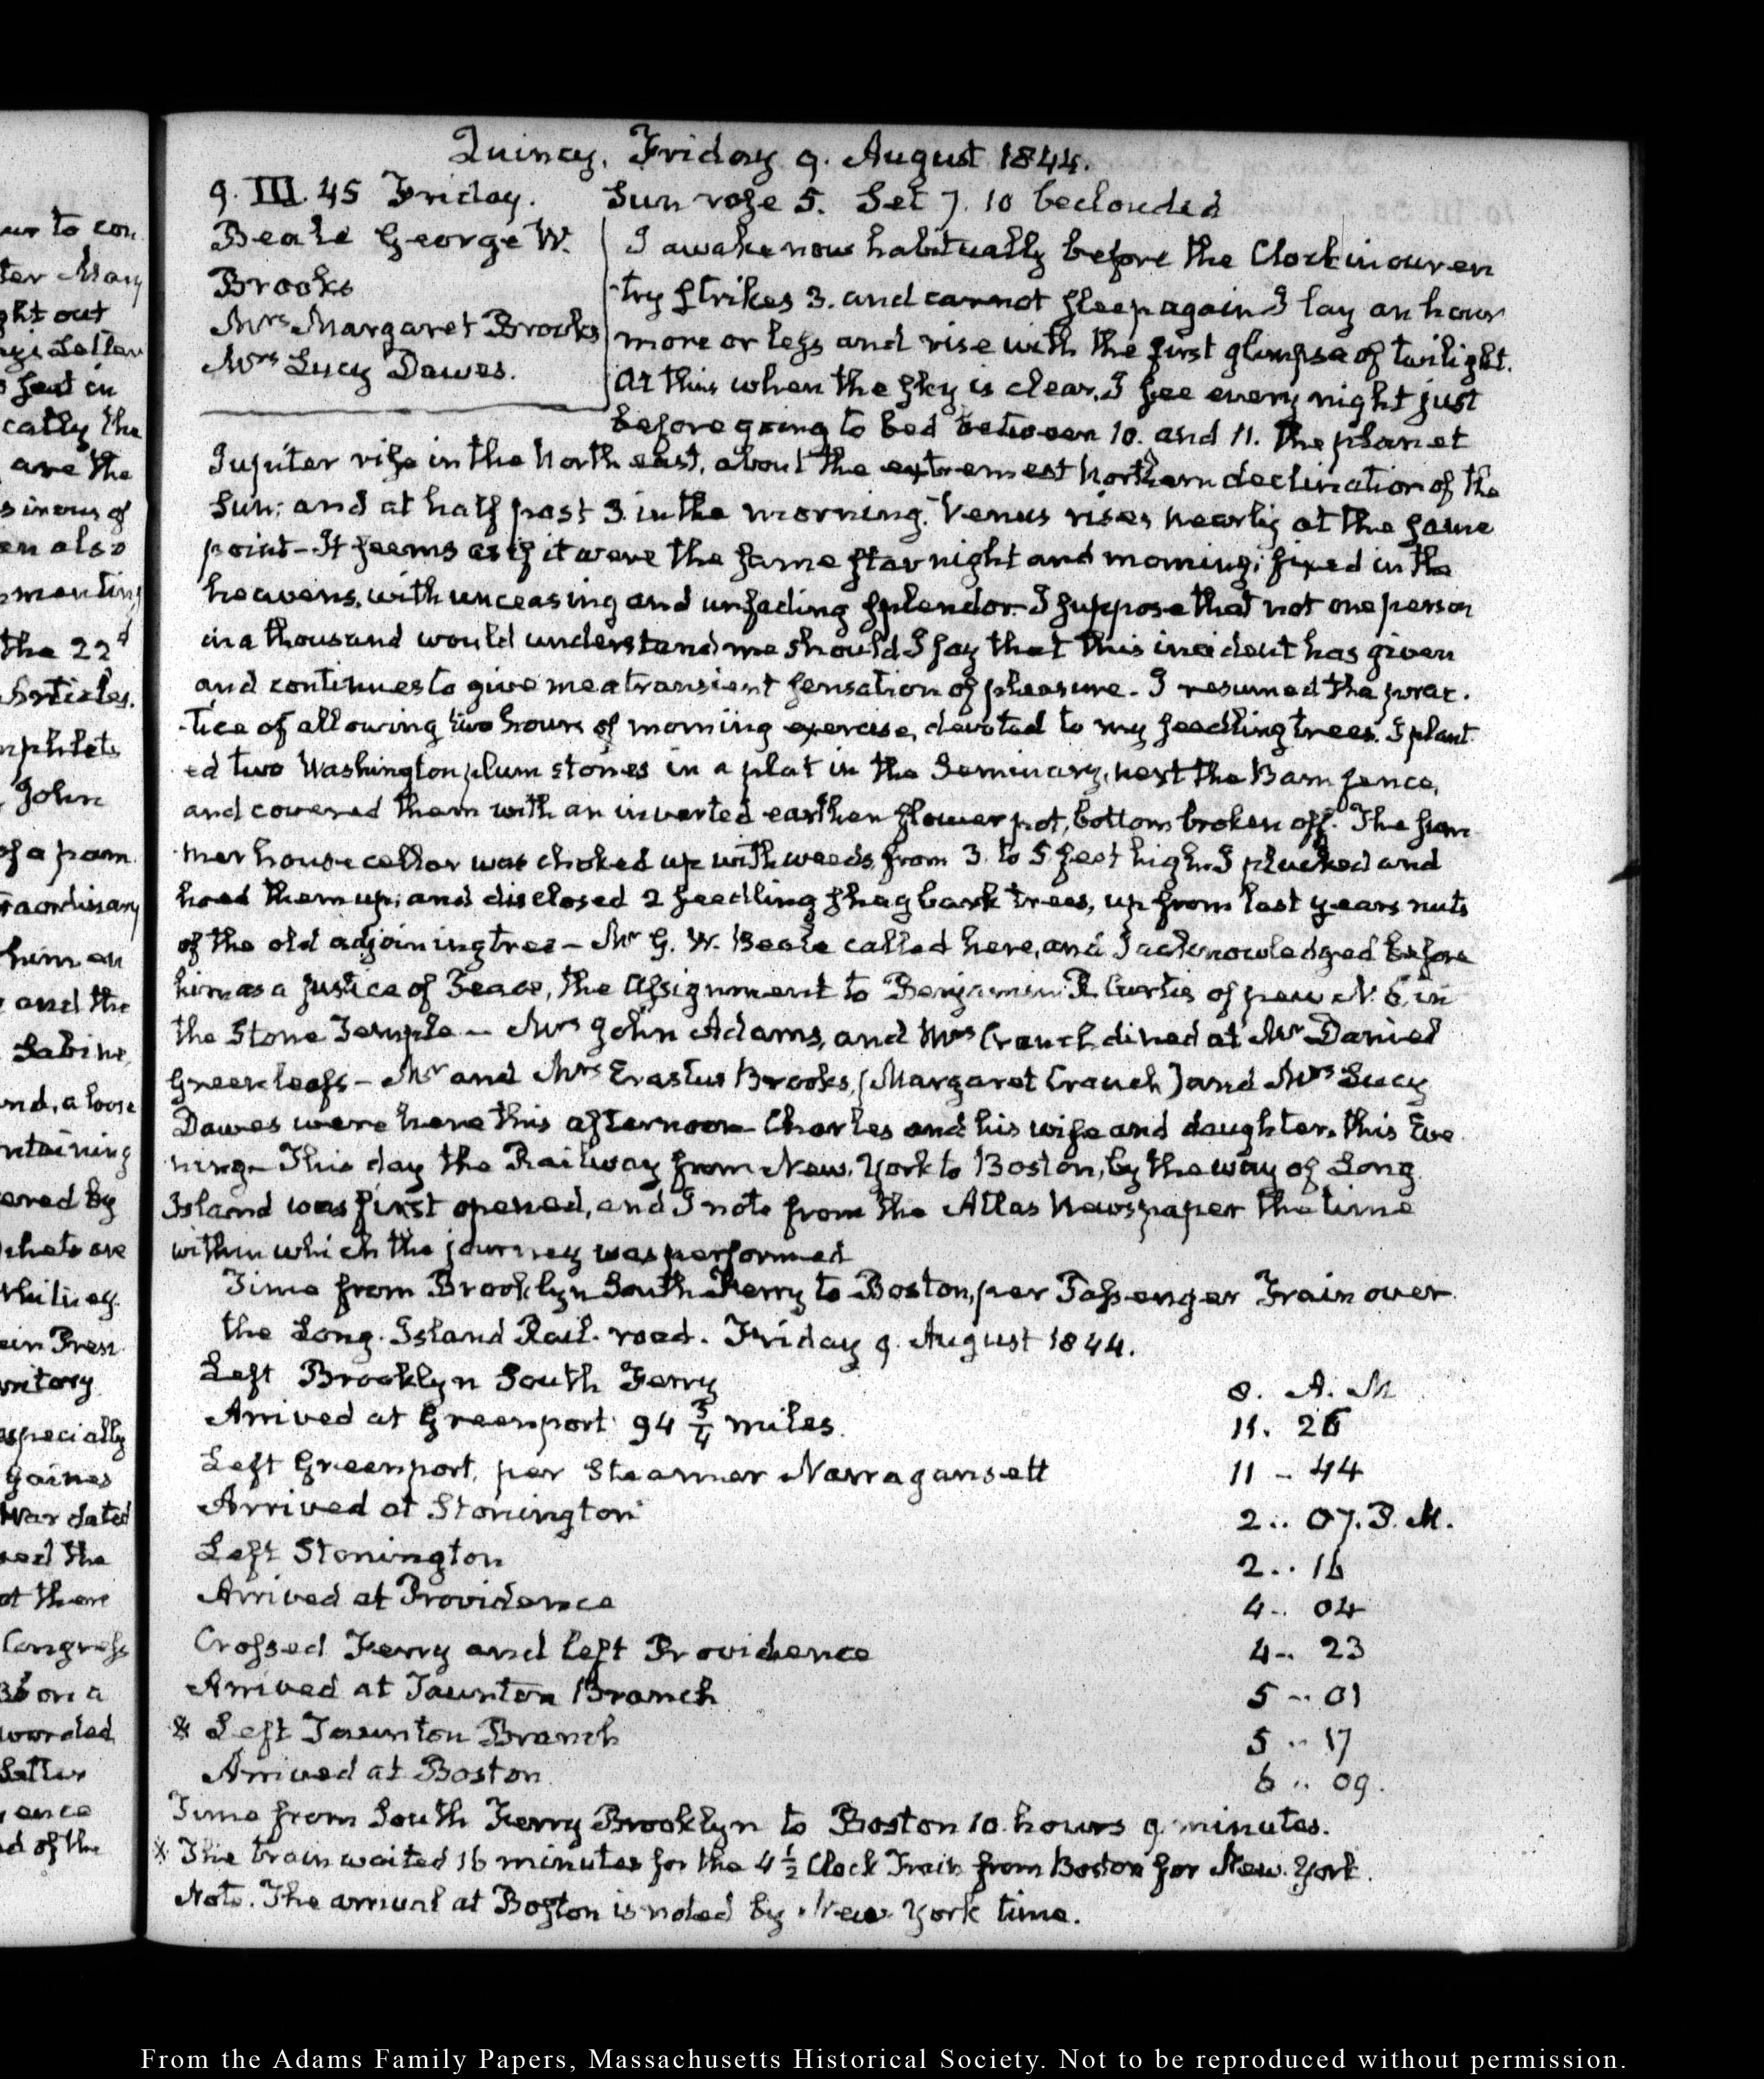 ur to con
ter Mary
ght out
seat in
cally the
are the
s irony of
en also
menting
the 22d
Articles.
mphlets
John
of a pam
raordinary
him an
and the
Sabine
and, a loose
ntaining
ered by
ein Pres
ritory
especially
Gaines
War dated
sed the
ot there
Congress
on a
worded
Letter
ence
d of the
Quincy, Friday 9. August 1844.
9. III. 45 Friday. Sun rose 5. Set 7. 10 beclouded
Beale George W.
Brooks
Mrs Margaret Brooks
Mrs Lucy Dawes.
I awake now habitually before the Clock in our en
-try strikes 3. and cannot sleep again I lay an hour
more or less and rise with the first glimpse of twilight.
At this when the sky is clear, I see every night just
before going to bed between 10. and 11. the planet
Jupiter rise in the North east, about the extremest Northern declination of the
Sun: and at half past 3. in the morning. Venus rises nearly at the same
point - It seems as if it were the same star night and morning; fixed in the
heavens, with unceasing and unfading splendor - I suppose that not one person
in a thousand would understand me should I say that this incident has given
and continues to give me a transient sensation of pleasure - I resumed the prac.
-tice of allowing two hours of morning exercise, devoted to my seedling trees. I plant
ed two Washington plum stones in a plat in the Seminary, next the Barn fence,
and covered them with an inverted earthen flower pot, bottom broken off. The sum
mer house cellar was choked up with weeds from 3. to 5 feet high. I plucked and
hoed them up; and disclosed 2 seedling shagbark trees, up from last years nuts
of the old adjoining tree - Mr G. W. Beale called here, and I acknowledged before
him as a justice of Peace, the Assignment to Benjamin R. Curtis of pew N. 6 in
the Stone Temple - Mrs John Adams, and Mrs Cranch dined at Mr Daniel
Greenleafs - Mr and Mrs Erastus Brooks, (Margaret Cranch) and Mrs Lucy
Dawes were here this afternoon - Charles and his wife and daughter, this Eve
ning - This day the Railway from New. York to Boston, by the way of Long
Island was first opened, and I note from the Atlas Newspaper the time
within which the journey was performed
Time from Brooklyn South Ferry to Boston, per Passenger Train over
the Long. Island Rail. road. Friday 9. August 1844.
Left Brooklyn South Ferry 8. A. M
Arrived at Greenport 94 3/4 miles. 11. 26
Left Greenport, per Steamer Narragansett 11 - 44
Arrived at Stonington 2.. 07. P. M.
Left Stonington 2.. 16
Arrived at Providence 4.. 04
Crossed Ferry and left Providence 4.. 23
Arrived at Taunton Branch 5.. 01
* Left Taunton Branch 5.. 17
Arrived at Boston 6.. 09.
Time from South Ferry Brooklyn to Boston 10. hours 9 minutes.
* The train waited 16 minutes for the 4 1/2 Clock Train from Boston for New. York.
Note. The arrival at Boston is noted by New York time.
From the Adams Family Papers, Massachusetts Historical Society. Not to be reproduced without permission.